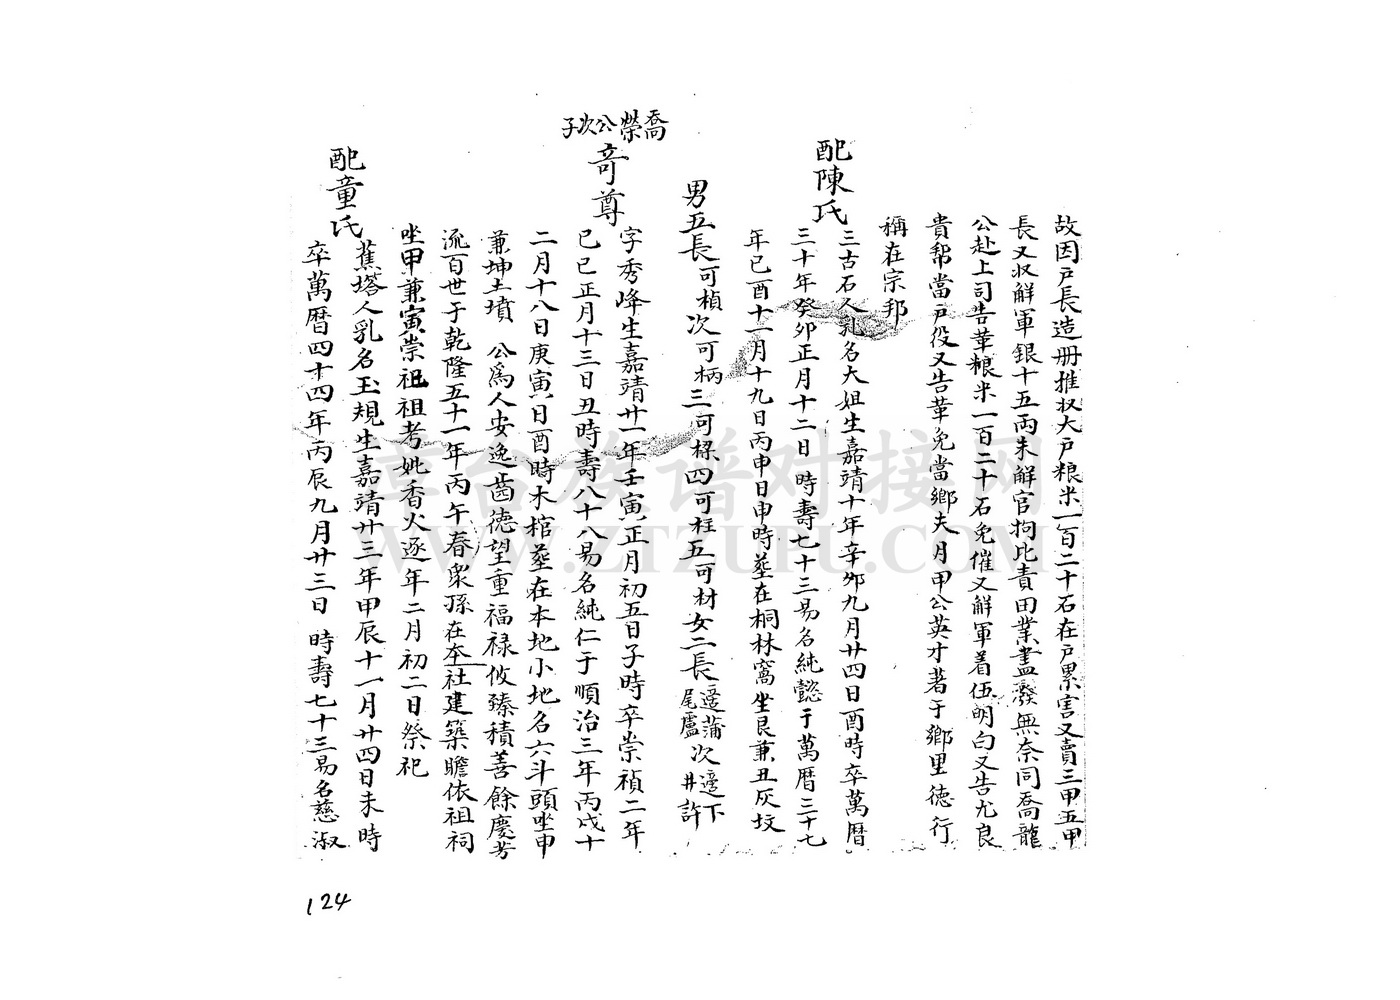 故因戸長造册推収大戸粮米一百二十石在戸累害又賣三甲五甲
長又収解軍銀十五両未解官拘比責田業盡廢無奈同喬龍
公赴上司告革粮米一百二十石免催又解軍着伍明白又告尤良
貴幇當戸役又告革免當鄉夫月甲公英才著于鄉里德行
稱在宗邦
配陳氏
三古石人乳名大姐生嘉靖十年辛卯九月廿四日酉時卒萬曆
三十年癸卯正月十二日時壽七十三易名純懿于萬曆三十七
年已酉十一月十九日丙申日申時塟在桐林窩坐艮兼丑灰坟
男五長可楨次可柄三可樑四可柱五可材女二長適蒲尾盧次適下井許
喬榮公次子
奇尊
字秀峰生嘉靖廿一年壬寅正月初五日子時卒崇禎二年
已巳正月十三日丑時壽八十八易名純仁于順治三年丙戌十
二月十八日庚寅日酉時木棺塟在本地小地名六斗頭坐申
兼坤土墳 公為人安逸齒德望重福禄攸臻積善餘慶芳
流百世于乾隆五十一年丙午春衆孫在本社建築瞻依祖祠
坐甲兼寅崇祖祖考妣香火逐年二月初二日祭祀
配童氏
蕉塔人乳名玉規生嘉靖廿三年甲辰十一月廿四日未時
卒萬曆四十四年丙辰九月廿三日時壽七十三易名慈淑
124
章台族谱对接网
WWW.ZTZUPU.COM